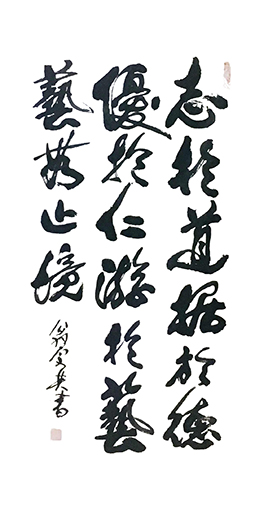 志於道據於德
優於仁游於藝
藝無止境